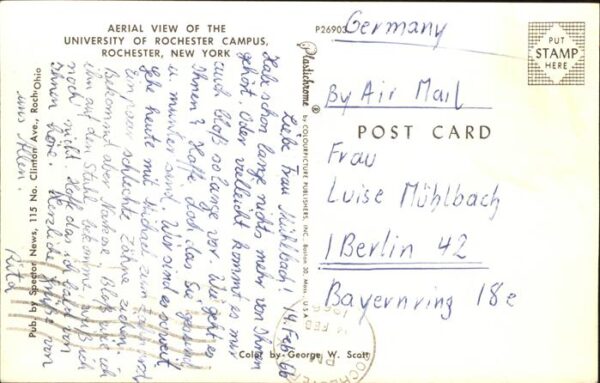 AERIAL VIEW OF THE
UNIVERSITY OF ROCHESTER CAMPUS,
ROCHESTER, NEW YORK
P26903
Germany
PUT
STAMP
HERE
By Air Mail
POST CARD
Frau
Luise Mühlbach
1 Berlin 42
Bayernring 18e
14. Feb 66
Liebe Frau Mühlbach!
Habe schon lange nichts mehr von Ihnen
gehört. Oder vielleicht kommt es mir
auch bloß so lange vor. Wie geht es
Ihnen? Hoffe doch das Sie gesund
u. munter sind. Wir sind es soweit.
Gehe heute mit Michael zum
Ein paar schlechte Zähne ziehen.
Bekommt aber Narkose. Bloß wie ich
ihn auf den Stuhl bekomme weiß ich
noch nicht. Hoffe das ich bald von
Ihnen höre. Herzliche Grüße von
uns Allen.
Rita
Plastichrome ® by COLOURPICTURE PUBLISHERS, INC., Boston 30, Mass., U.S.A.
Pub. by Spector News, 115 No. Clinton Ave., Roch Ohio
Color by George W. Scott
ROCHESTER
PM
14 FEB
1966